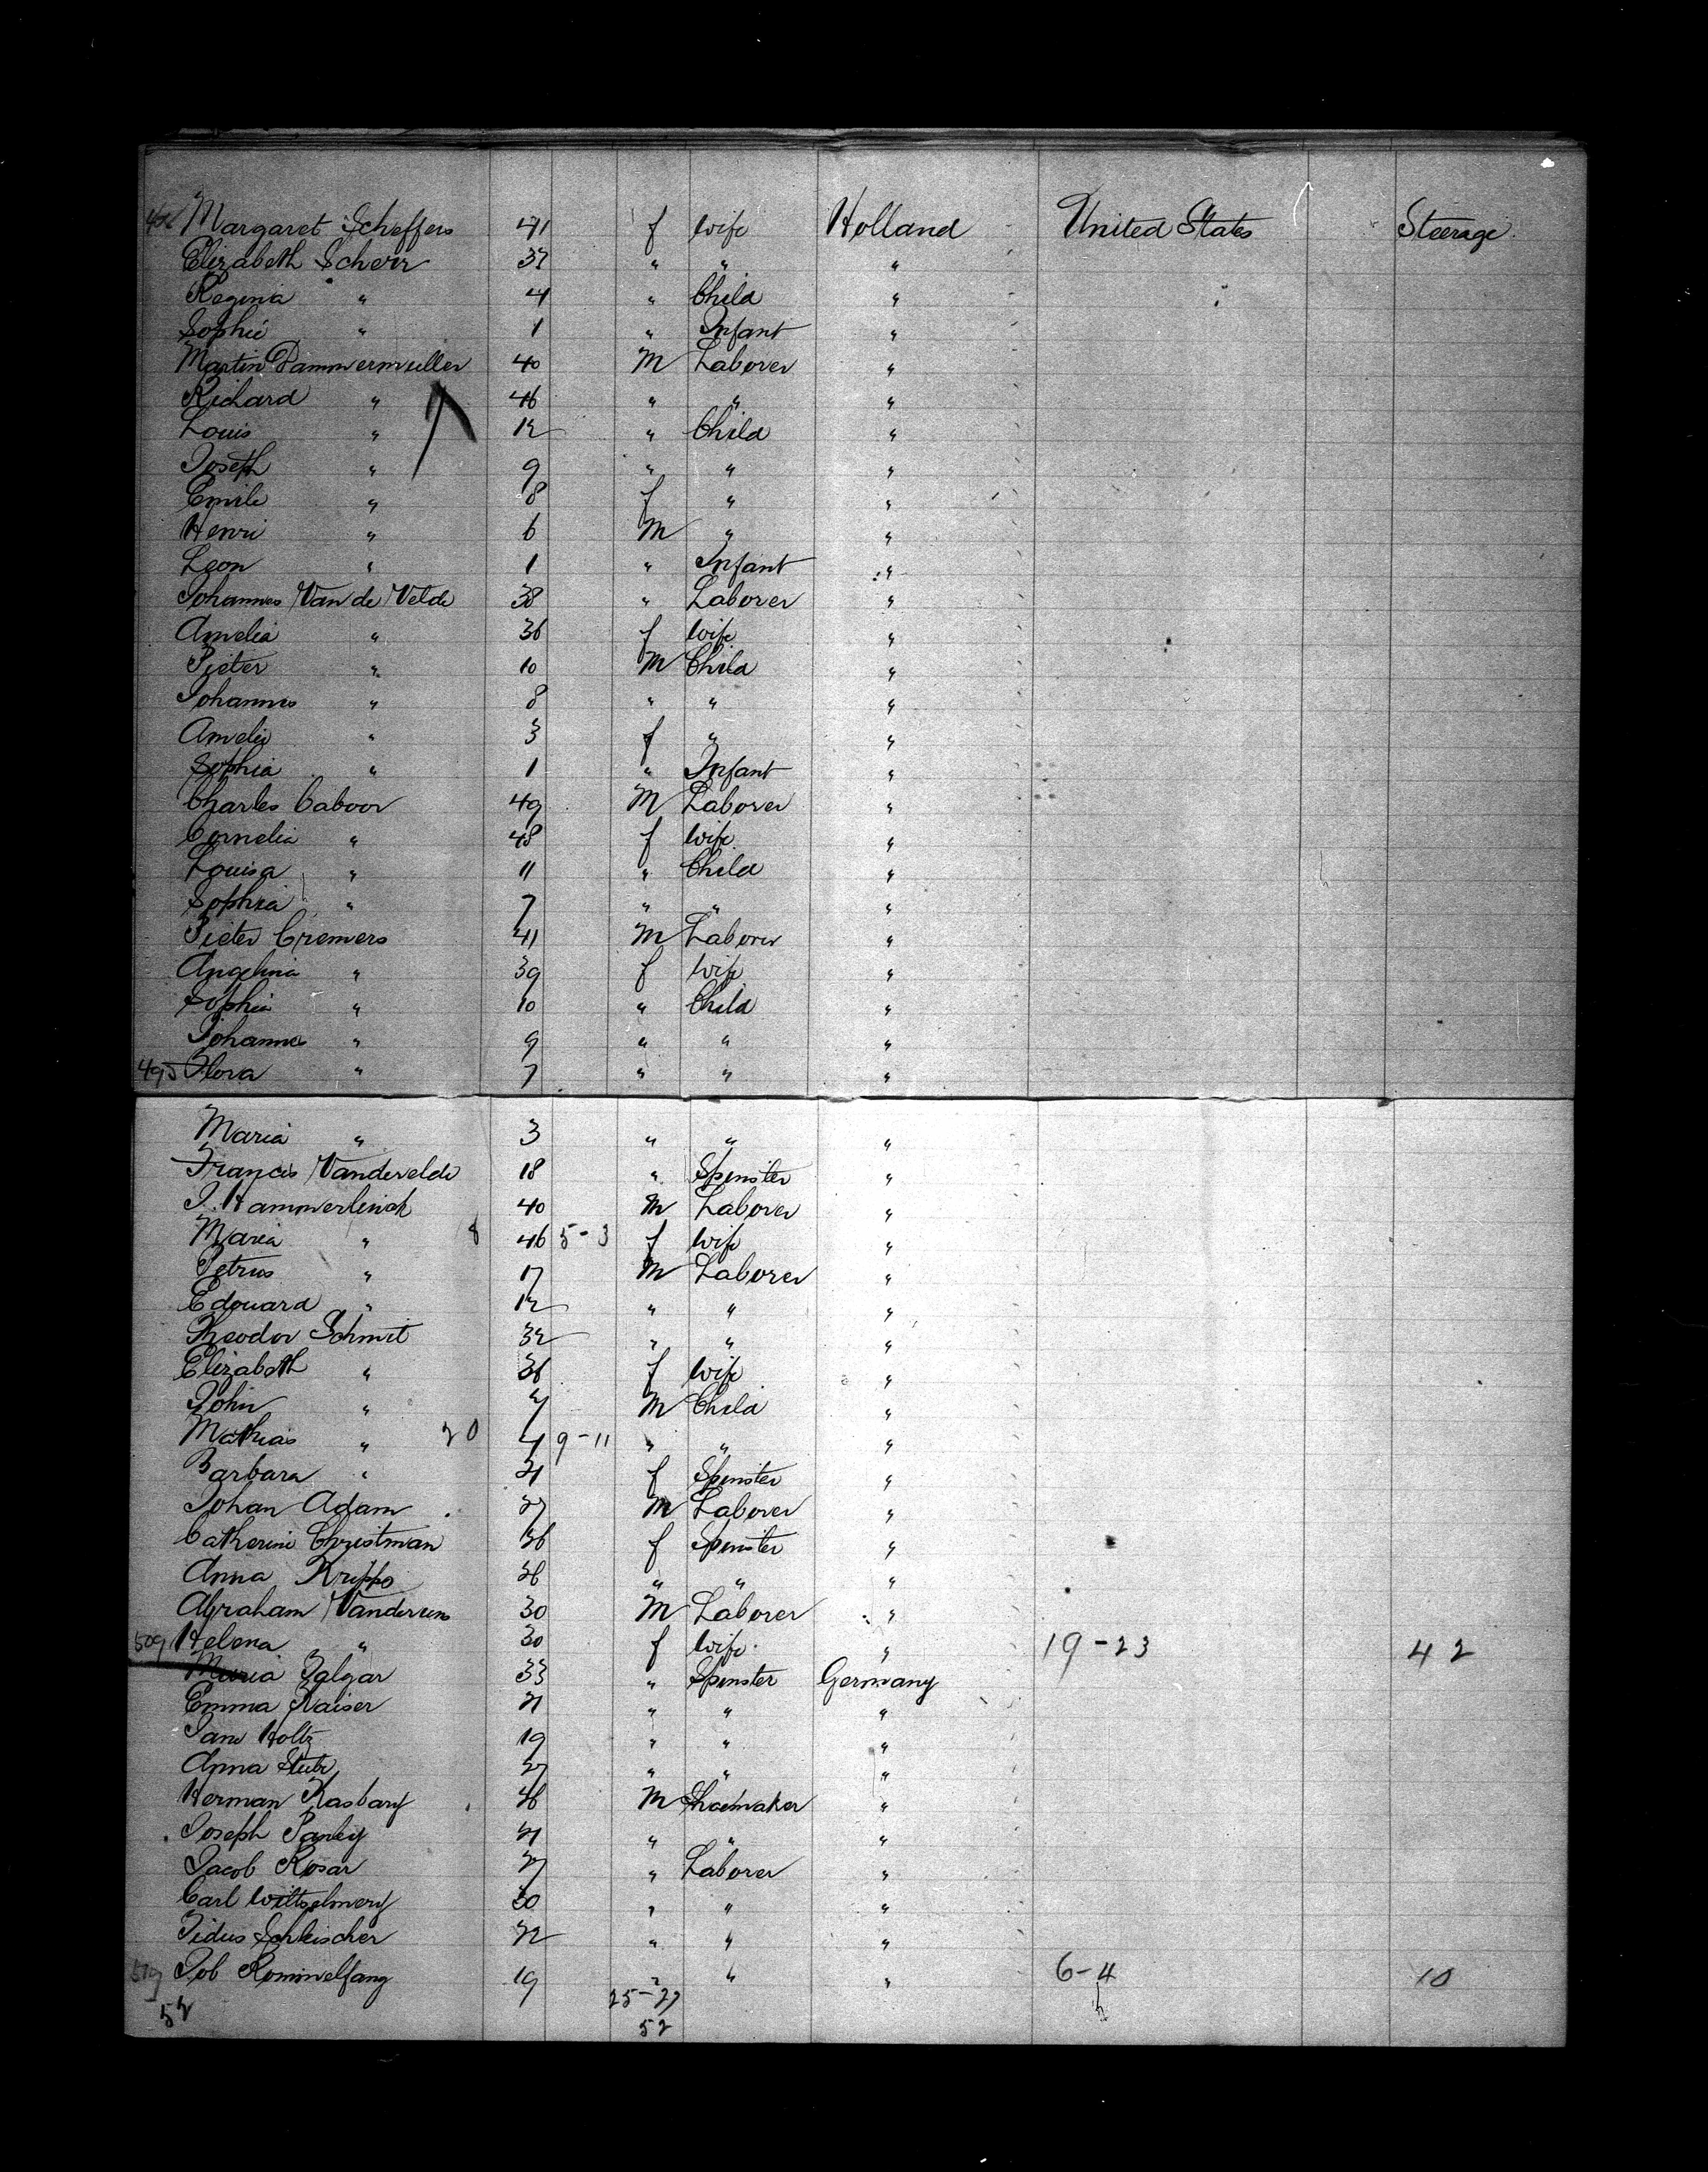 Margaret Scheffers 41 f Wife Holland United States Steerage
Elizabeth Scherr 37 " " "
Regina " 4 " Child "
Sophie " 1 " Infant "
Martin Dammermuller 40 M Laborer "
Richard " 46 " " "
Louis " 12 " Child "
Joseph " 9 " " "
Emile " 8 f " "
Henri " 6 M " "
Leon " 1 " Infant "
Johannes Van de Velde 38 " Laborer "
Amelia " 36 f Wife "
Pieter " 10 M Child "
Johannes " 8 " " "
Amelia " 3 f " "
Sophia " 1 " Infant "
Charles Caboor 49 M Laborer "
Cornelia " 48 f Wife "
Louisa " 11 " Child "
Sophia " 7 " " "
Pieter Cremers 41 M Laborer "
Angelina " 39 f Wife "
Sophia " 10 " Child "
Johanna " 9 " " "
495 Flora " 7 " " "
Maria " 3 " " "
Francis Vandevelde 18 " Spinster "
J. Hammerlinck 40 M Laborer "
Maria " 8 46 5-3 f Wife "
Petrus " 17 M Laborer "
Edouard " 12 " " "
Theodor Schmit 32 " " "
Elizabeth " 36 f Wife "
John " 7 M Child "
Mathias " 20 4 9-11 " " "
Barbara " 21 f Spinster "
Johan Adam 27 M Laborer "
Catherine Christman 36 f Spinster "
Anna Krippo 28 " " "
Abraham Vanderveen 30 M Laborer "
509 Helena " 30 f Wife " 19-23 42
Maria Zalgar 33 " Spinster Germany
Emma Kaiser 21 " " "
Jane Holtz 19 " " "
Anna Stube 27 " " "
Herman Kasbary 28 M Shoemaker "
Joseph Panley 21 " " "
Jacob Rosar 27 " Laborer "
Carl 30 " " "
Fidus Schleischer 22 " " "
519 Job Rommelfang 19 " " " 6-4 10
52 25-27
52